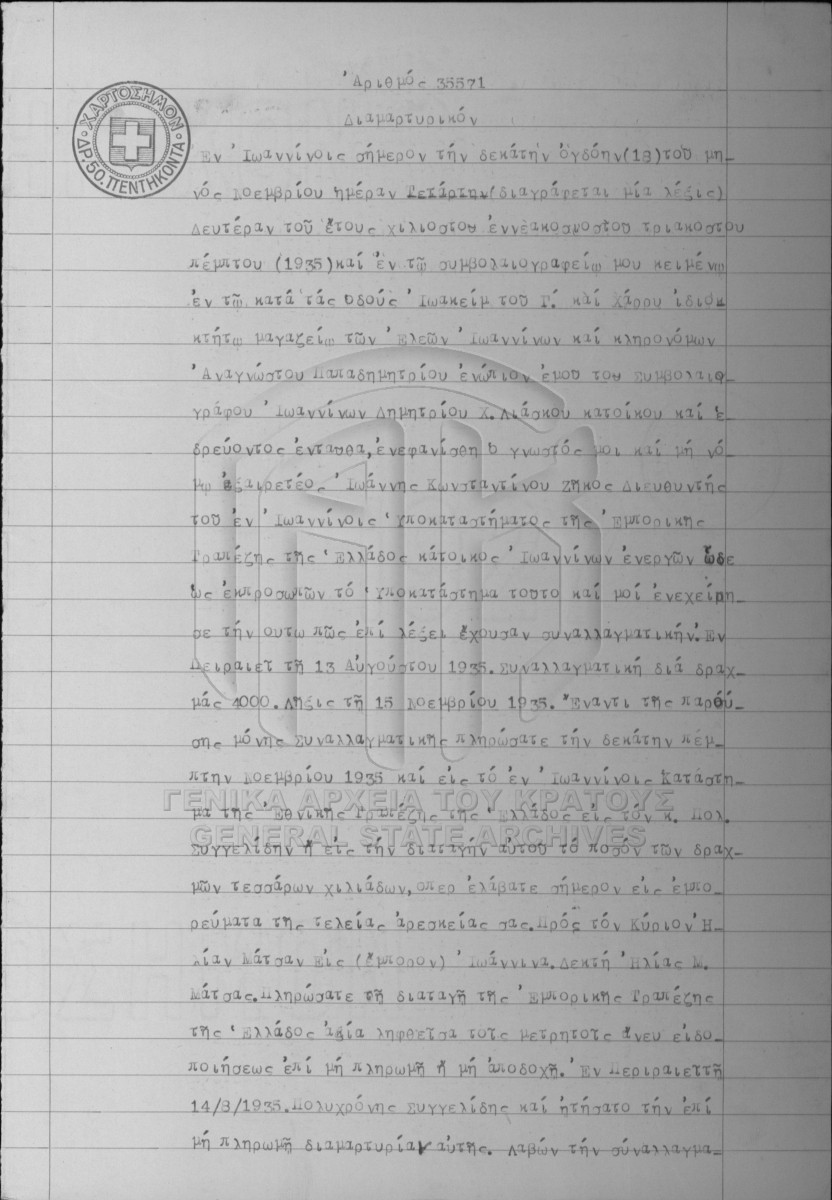 Ἀριθμός 35571
Διαμαρτυρικόν
ΧΑΡΤΟΣΗΜΟΝ
ΔΡ.50.ΠΕΝΤΗΚΟΝΤΑ
Ἐν Ἰωαννίνοις σήμερον τήν δεκάτην ὀγδόην(18)τοῦ μη-
νός Νοεμβρίου ἡμέραν Τετάρτην(διαγράφεται μία λέξις)
Δευτέραν τοῦ ἔτους χιλιοστοῦ ἐννεακοσιοστοῦ τριακοστοῦ
πέμπτου (1935)καί ἐν τῷ συμβολαιογραφείῳ μου κειμένῳ
ἐν τῷ κατά τάς ὁδούς Ἰωακείμ τοῦ Γ. καί Χάρρυ ἰδιοκ
κτήτῳ μαγαζείῳ τῶν Ἐλεῶν Ἰωαννίνων καί κληρονόμων
Ἀναγνώστου Παπαδημητρίου ἐνώπιον ἐμοῦ τοῦ Συμβολαιο-
γράφου Ἰωαννίνων Δημητρίου Χ.Λιάσκου κατοίκου καί ἑ-
δρεύοντος ἐνταῦθα,ἐνεφανίσθη ὁ γνωστός μοι καί μή νό-
μῳ ἐξαιρετέος Ἰωάννης Κωνσταντίνου Ζῆκος Διευθυντής
τοῦ ἐν Ἰωαννίνοις Ὑποκαταστήματος τῆς Ἐμπορικῆς
Τραπέζης τῆς Ἑλλάδος κάτοικος Ἰωαννίνων ἐνεργῶν ὧδε
ὡς ἐκπροσωπῶν τό Ὑποκατάστημα τοῦτο καί μοί ἐνεχείρη-
σε τήν οὕτω πῶς ἐπί λέξει ἔχουσαν συναλλαγματικήν.Ἐν
Πειραιεῖ τῇ 13 Αὐγούστου 1935.Συναλλαγματική διά δραχ-
μάς 4000.Λῆξις τῇ 15 Νοεμβρίου 1935. Ἔναντι τῆς παρού-
σης μόνης Συναλλαγματικῆς πληρώσατε τήν δεκάτην πέμ-
πτην Νοεμβρίου 1935 καί εἰς τό ἐν Ἰωαννίνοις Κατάστη-
μα τῆς Ἐθνικῆς Τραπέζης τῆς Ἑλλάδος εἰς τόν κ. Πολ.
Συγγελίδην ἤ εἰς τήν διαταγήν αὐτοῦ τό ποσόν τῶν δραχ-
μῶν τεσσάρων χιλιάδων,ὅπερ ἐλάβατε σήμερον εἰς ἐμπο-
ρεύματα τῆς τελείας ἀρεσκείας σας.Πρός τόν Κύριον Ἠ-
λίαν Μάτσαν Εἰς (ἔμπορον) Ἰωάννινα.Δεκτή Ἠλίας Μ.
Μάτσας.Πληρώσατε τῇ διαταγῇ τῆς Ἐμπορικῆς Τραπέζης
τῆς Ἑλλάδος ἀξία ληφθεῖσα τοῖς μετρητοῖς ἄνευ εἰδο-
ποιήσεως ἐπί μή πληρωμῇ ἤ μή ἀποδοχῇ. Ἐν Περιραιεῖτῇ
14/8/1935.Πολυχρόνης Συγγελίδης καί ᾐτήσατο τήν ἐπί
μή πληρωμῇ διαμαρτυρίαν αὐτῆς. Λαβών τήν συναλλαγμα-
ΓΕΝΙΚΑ ΑΡΧΕΙΑ ΤΟΥ ΚΡΑΤΟΥΣ
GENERAL STATE ARCHIVES